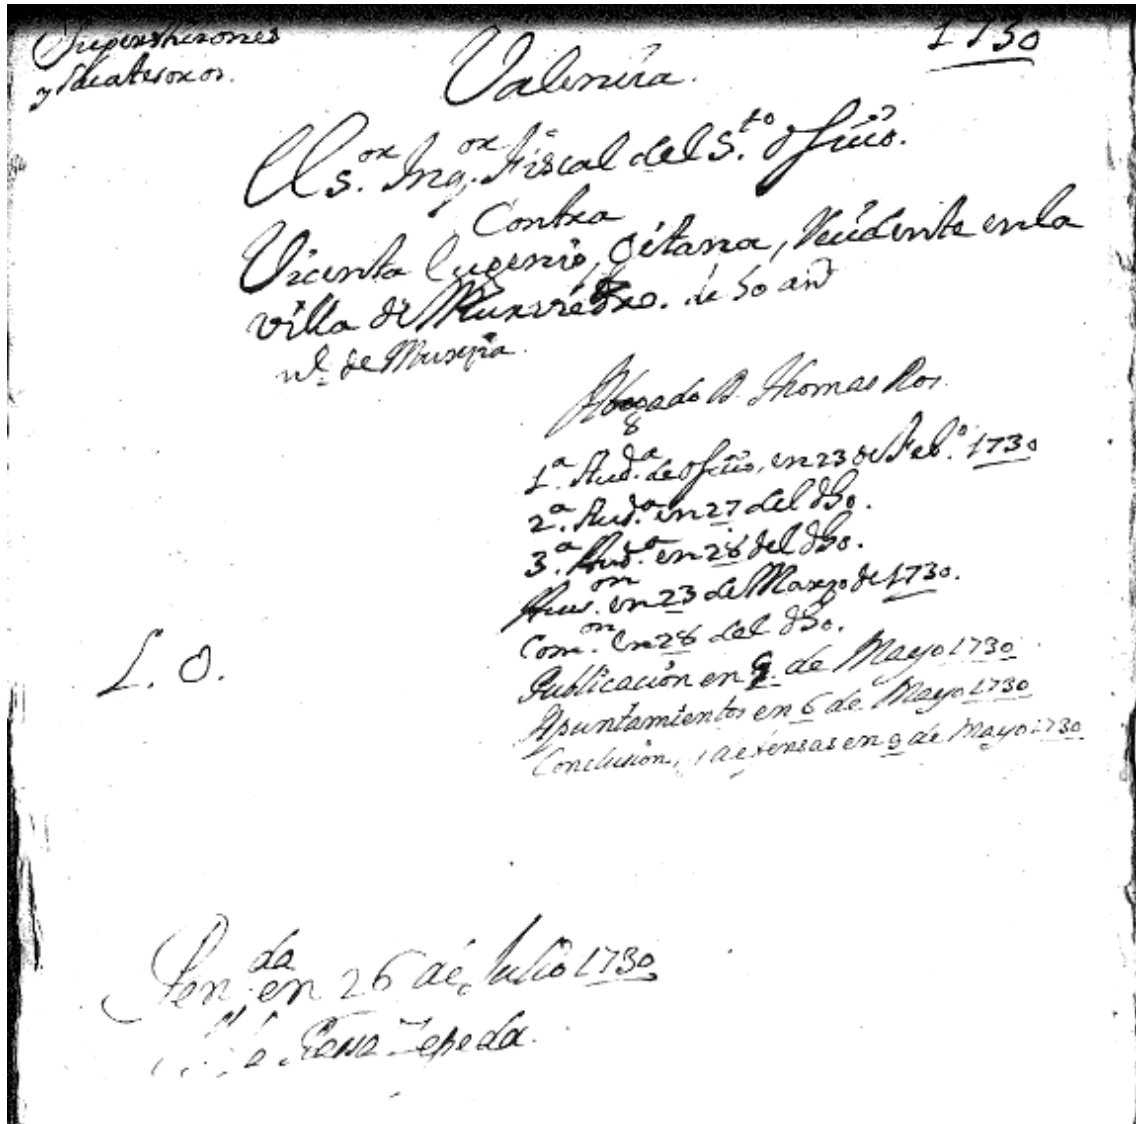 Supersticiones
y
1730
Valencia.
El S.or Inq.or Fiscal del S.to Ofiio.
Contra
Vicenta Eugenio, Gitana, Residente en la
villa de Murviedro. de 50 an.s
n.l de Murcia.
Abogado D. Thomas Ros.
1.a Aud.a de ofiio, en 23 de Feb.o 1730
2.a Aud.a en 27 del dho.
3.a Aud.a en 28 del dho.
Acus.on en 23 de Marzo de 1730.
Com.on en 28 del dho.
Publicación en de Mayo 1730
Apuntamientos en 6 de Mayo 1730
Conclusión, defensas en 9 de Mayo 1730
L. O.
en 26 de Julio 1730
Zepeda.